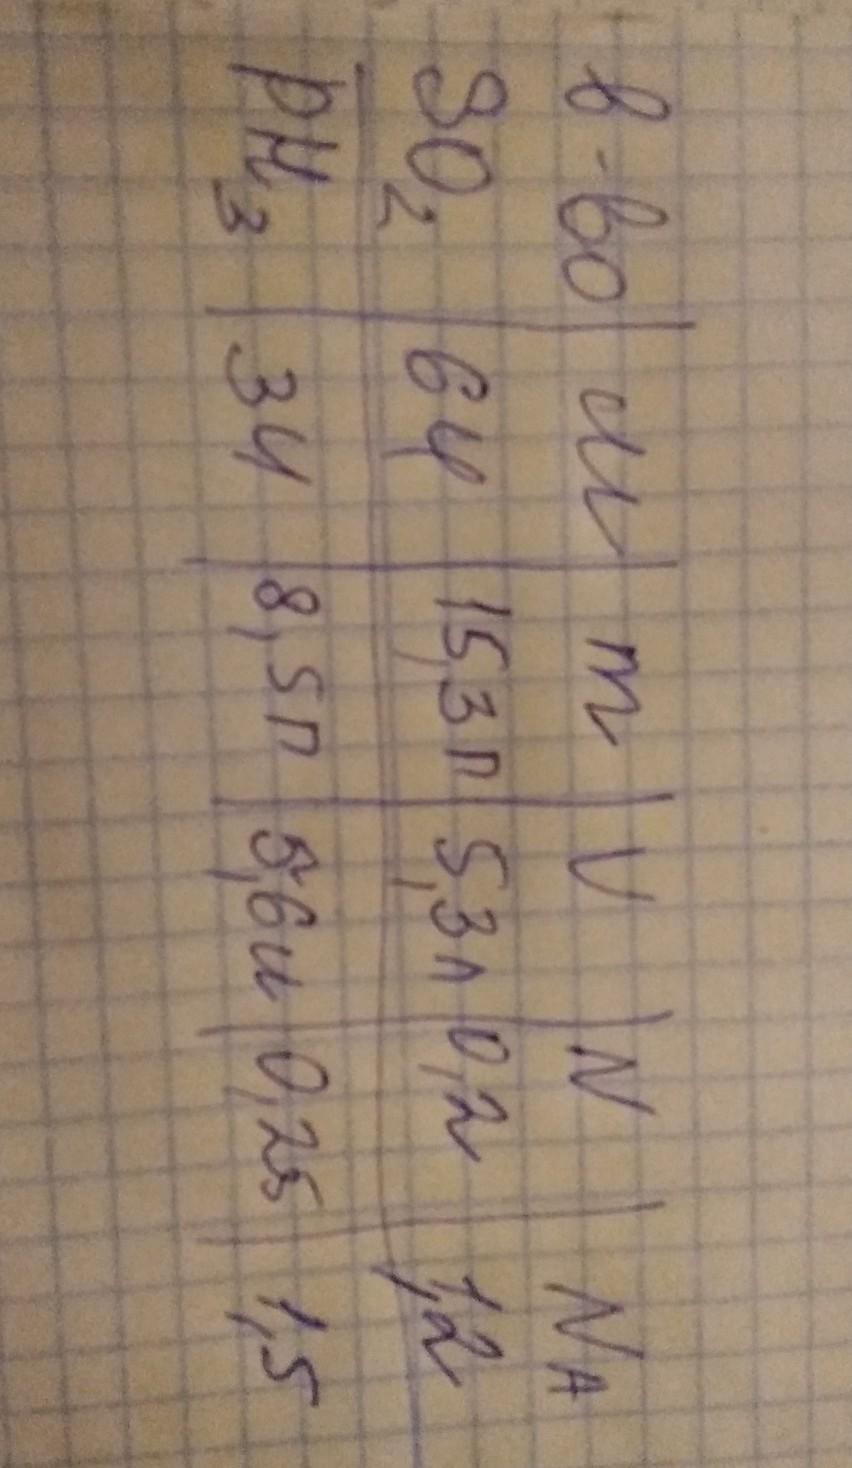 в-во M m V N NA
SO2 64 15,3г 5,3л 0,2 1,2
PH3 34 8,5г 5,6л 0,25 1,5